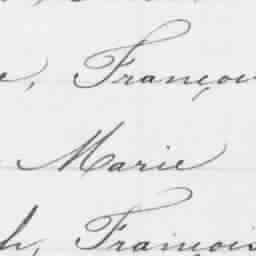 François
Marie
François